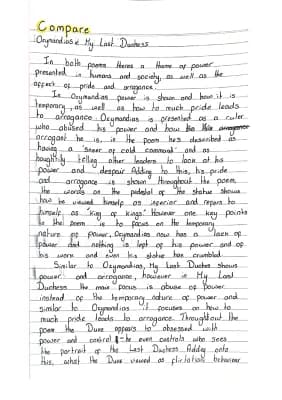 Compare
Ozymandias & My Last Duchess
In both poems theres a theme of power
presented in humans and society, as well as the
affect of pride and arrogance.
In Ozymandias power is shown and how it is
temporary, as well as how to much pride leads
to arrogance. Ozymandias is presented as a ruler
who abused his power and how
arrogant he is, in the poem he's described as
having a "sneer of cold command" and as
haughtily telling other leaders to look at his
power and despair. Adding to this, his pride
and arrogance is shown throughout the poem,
the words on the pedestal of the statue shows
how he viewed himself as superior and refers to
himself as "King of kings". However one key points
in the poem is to focus on the temporary
nature of power, Ozymandias now has a lack of
power and nothing is left of his power and of
his work and even his statue has crumbled.
Similar to Ozymandias, My Last Duchess shows
power and arrogance, however in My Last
Duchess the main focus is abuse of power
instead of the temporary nature of power and
similar to Ozymandias it focuses on how to
much pride leads to arrogance. Throughout the
poem the Duke appears to obsessed with
power and control - he even controls who sees
the portrait of the Last Duchess. Adding onto
this, what the Duke viewed as flirtatious behaviour